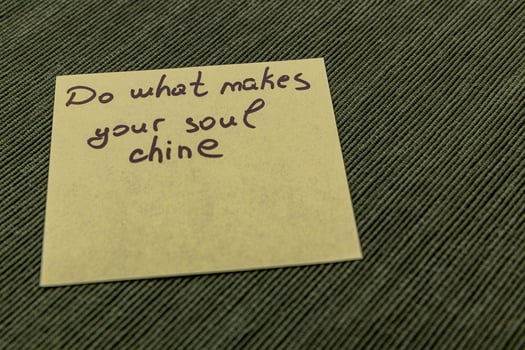 Do what makes
your soul
chine